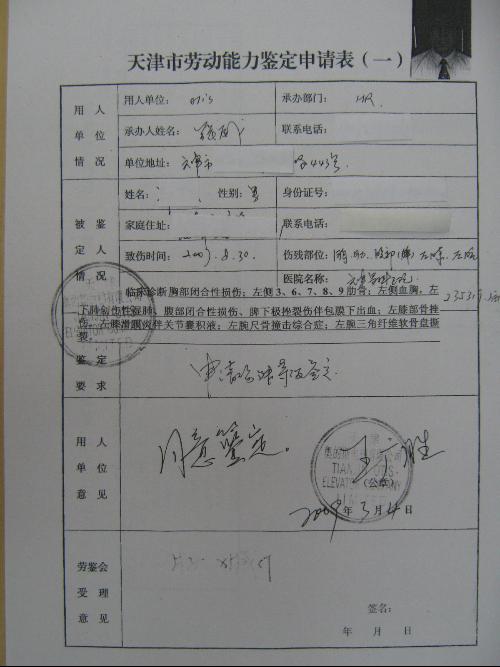 天津市劳动能力鉴定申请表（一）
用人单位情况
用人单位：otis 承办部门：HR
承办人姓名： 联系电话：
单位地址：天津市 443号
被鉴定人情况
姓名： 性别：男 身份证号：
家庭住址： 联系电话：
致伤时间：2007.8.30. 伤残部位：
医院名称：
临床诊断 胸部闭合性损伤；左侧3、6、7、8、9肋骨；左侧血胸，左
下肺创伤性湿肺，腹部闭合性损伤、脾下极挫裂伤伴包膜下出血；左膝部骨挫
伤。左膝滑膜炎伴关节囊积液；左腕尺骨撞击综合症；左腕三角纤维软骨盘撕
裂。
鉴定要求
申请 等级鉴定
用人单位意见
同意鉴定。
TIANJIN OTIS
ELEVATOR COMPANY
LIMITED
（公章）
2009年3月4日
劳鉴会受理意见
签名：
年 月 日